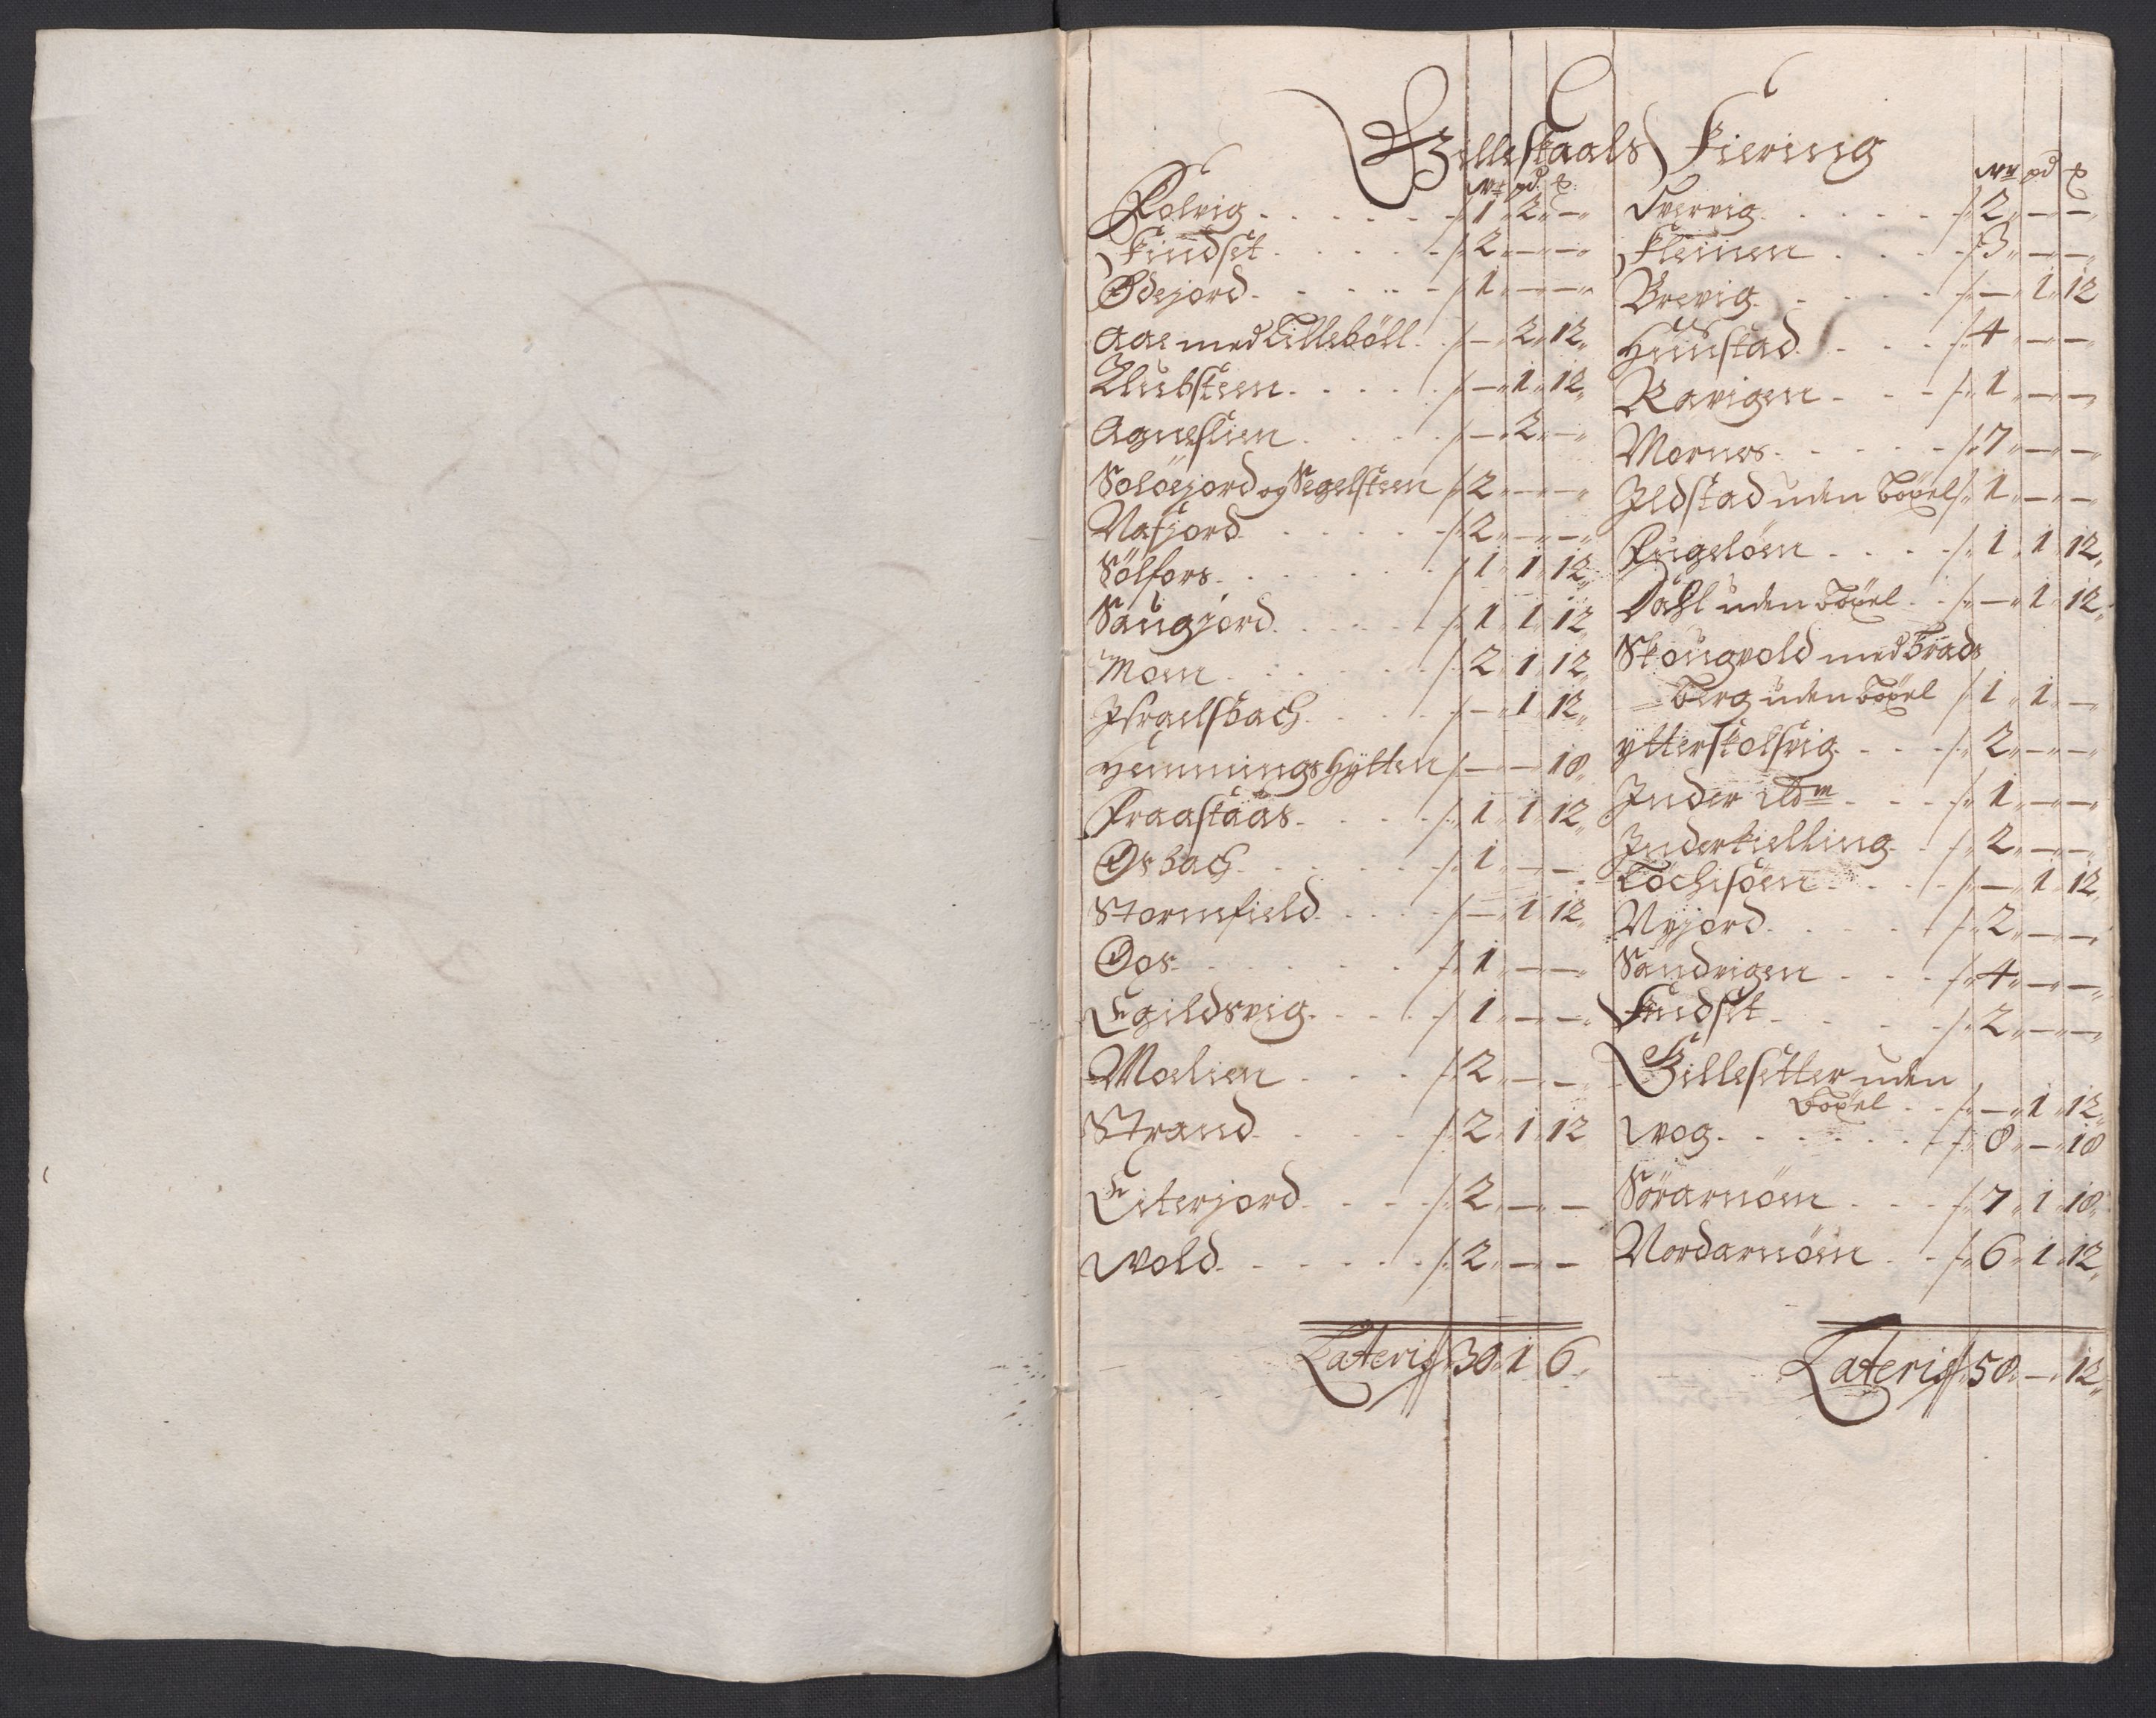 Gilleskaals Fiering
Wr pd. ℔
Kolvig . . . . . . ./. 1 „ 2 „ — „
Findset . . . . . ./. 2 „ — „ — „
Ødejord . . . . . ./. 1 „ — „ — „
Aae med Tillebøll . ./. — „ 2 „ 12 „
Klubsteen . . . . ./. — „ 1 „ 12 „
Agneslien . . . . ./. — „ 2 „ — „
Soløejord og Segelsteen ./. 2 „ — „ — „
Nasjord . . . . . ./. 2 „ — „ — „
Sølfors . . . . . . ./. 1 „ 1 „ 12 „
Saugjord . . . . . ./. 1 „ 1 „ 12
Moen . . . . . . ./. 2 „ 1 „ 12 „
Jsraelsbach . . . . ./. — „ 1 „ 12 „
Hemmingshÿtten ./. — „ — „ 18 „
Fraastaas . . . . ./. 1 „ 1 „ 12 „
Osbach . . . . . ./. 1 „ — „ —
Stornefield . . . . ./. — „ 1 „ 12
Oos . . . . . . . ./. 1 „ — „ — „
Egildsvig . . . . ./. 1 „ — „ — „
Moelien . . . . ./. 2 „ — „ — „
Strand . . . . . ./. 2 „ 1 „ 12
Eiterjord . . . . ./. 2 „ — „ —
Wold . . . . . . ./. 2 „ — „ —
Lateris ./. 30 „ 1 „ 6 „
Wr pd ℔
Svervig . . . . . ./. 2 „ — „ — „
Fleinen . . . . . ./. 3 „ — „ — „
Brevig . . . . . ./. — „ 1 „ 12
Hunstad . . . . ./. 4 „ — „ — „
Ravigen . . . . ./. 1 „ — „ — „
Mornes . . . . . ./. 7 „ — „ — „
Jldstad uden bøxel ./. 1 „ — „ — „
Fugeløen . . . . ./. 1 „ 1 „ 12 „
Dahl uden bøxel . ./. — „ 1 „ 12 „
Skougvold med Brads
= berg uden bøxel ./. 1 „ 1 „ —
ytterstolsvig . . . ./. 2 „ — „ — „
Jnder itdm . . . ./. 1 „ — „ — „
Jnderkielling . . ./. 2 „ — „ — „
Tochisøen . . . . ./. — „ 1 „ 12 „
Nyjord . . . . . ./. 2 „ — „ — „
Sandvigen . . . ./. 4 „ — „ — „
Findset . . . . . ./. 2 „ — „ — „
Gillesetter uden
bøxel . . ./. — „ 1 „ 12 „
Wog . . . . . . . ./. 8 „ — „ 18
Sørarnøen . . . ./. 7 „ 1 „ 18 „
Nordarnøen . . ./. 6 „ 1 „ 12 „
Lateris ./. 58 „ — „ 12 „